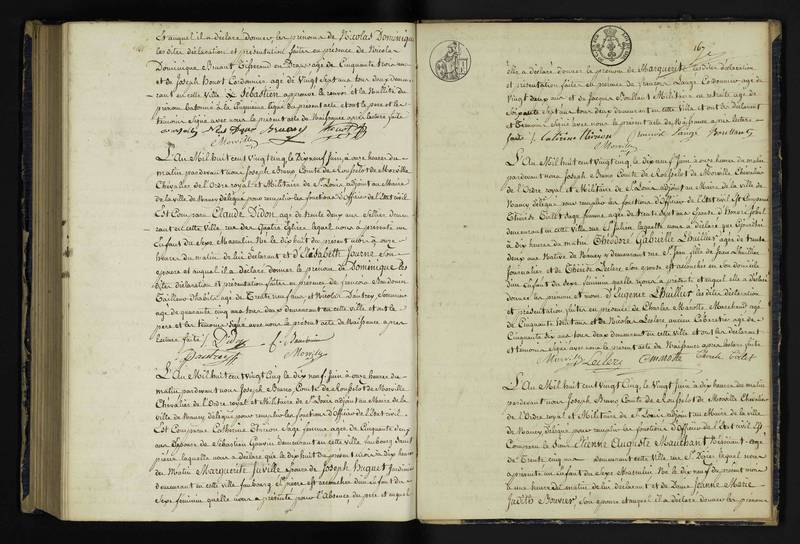 Et auquel il a déclaré donner les prénoms de Nicolas Dominique
les dites déclaration et présentation faites en présence de Nicolas
Dominique Brouant
et de Joseph Honot Cordonnier agé de Vingt Sept ans tous deux demeu-
rant en cette Ville
prénom
témoins signé avec nous le présent acte de Naissance après lecture faite
Morville
L'An Mil huit cent Vingt Cinq le Dix neuf Juin à onze heures du
matin pardevant nous Joseph Bruno Comte de Rousselot de Morville
Chevalier de l'Ordre royal et Militaire de St Louis adjoint au Maire
de la ville de Nancy délégué pour remplir les fonctions d'Officier de l'état civil
Est Comparu Claude Didon agé de trente deux ans Sellier demeu-
rant en cette Ville rue des Quatre Eglises lequel nous a présenté un
Enfant du Sexe Masculin Né le dix huit du présent mois à onze
heures du matin de lui déclarant et d'Elisabeth Journé Son
épouse et auquel il a déclaré donner le prénom de Dominique les
dites déclaration et présentation faites en présence de François
Tailleur d'habits agé de Trente neuf ans et Nicolas Dautrey
agé de quarante cinq ans tous deux demeurant en cette ville et ont le
père et les témoins signé avec nous le présent acte de Naissance après
lecture faite / Didon
Dautrey Morville
L'An Mil huit cent Vingt Cinq le Dix neuf Juin à onze heures du
matin pardevant nous Joseph Bruno Comte de Rousselot de Morville
Chevalier de l'Ordre royal et Militaire de St Louis adjoint au Maire de la
ville de Nancy délégué pour remplir les fonctions d'Officier de l'état civil
Est Comparue Catherine Thirion Sage femme agée de Cinquante
ans épouse de Sébastien demeurant en cette ville faubourg Saint
pierre laquelle nous a déclaré que le dix huit du présent mois à dix heures
du Matin Marguerite Juville épouse de Joseph Huguet Jardinier
demeurant en cette ville faubourg St pierre est accouchée d'un Enfant du
Sexe féminin qu'elle nous a présenté pour l'absence du père et auquel
167
elle a déclaré donner le prénom de Marguerite les dites déclaration
et présentation faites en présence de François Langé Cordonnier agé de
Vingt deux ans et de Jacques Boullant Militaire en retraite agé de
Soixante sept ans tous deux demeurant en cette Ville et ont la déclarant
et témoins signé avec nous le présent acte de Naissance après lecture
faite / Catrine thirion Langé Boullant
Morville
L'An Mil huit cent Vingt cinq, le dix neuf Juin à onze heures du matin
pardevant nous Joseph Bruno Comte de Rousselot de Morville Chevalier
de l'Ordre royal et Militaire de St Louis adjoint au Maire de la ville de
Nancy délégué pour remplir les fonctions d'Officier de l'état civil Est Comparue
Thérèse Tillet Sage femme agée de trente sept ans Epouse de
demeurant en cette Ville rue St Julien laquelle nous a déclaré que
à dix heures du matin Théodore Gabrielle Lhuillier agée de trente
deux ans Native de Nancy y demeurant rue St Jean fille de Jean Lhuillier
Journalier et de Thérèse Leclerc Son épouse est accouchée en son domicile
d'un Enfant du Sexe féminin qu'elle nous a présenté et auquel elle a déclaré
donner les prénom et nom d'Eugénie Lhuillier les dites déclaration
et présentation faites en présence de Charles Marotte Marchand agé
de Cinquante huit ans et de Nicolas Leclerc ancien Cabaretier agé de
Cinquante dix ans tous deux demeurant en cette Ville et ont la déclarant
et témoins signé avec nous le présent acte de Naissance après lecture faite
Morville Leclerc Cmarotte
L'An Mil huit cent Vingt Cinq, le Vingt Juin à dix heures du matin
pardevant nous Joseph Bruno Comte de Rousselot de Morville Chevalier
de l'Ordre royal et Militaire de St Louis adjoint au Maire de la ville
de Nancy délégué pour remplir les fonctions d'Officier de l'état civil Est
Comparu le Sieur Etienne Auguste Mauchant agé
de Trente cinq ans demeurant cette Ville rue St Dizier lequel nous
a présenté un Enfant du Sexe Masculin Né le dix neuf du présent mois
à une heure du matin de lui déclarant et de Dame Jeanne Marie
Judith Bouvier, Son épouse et auquel il a déclaré donner les prénoms